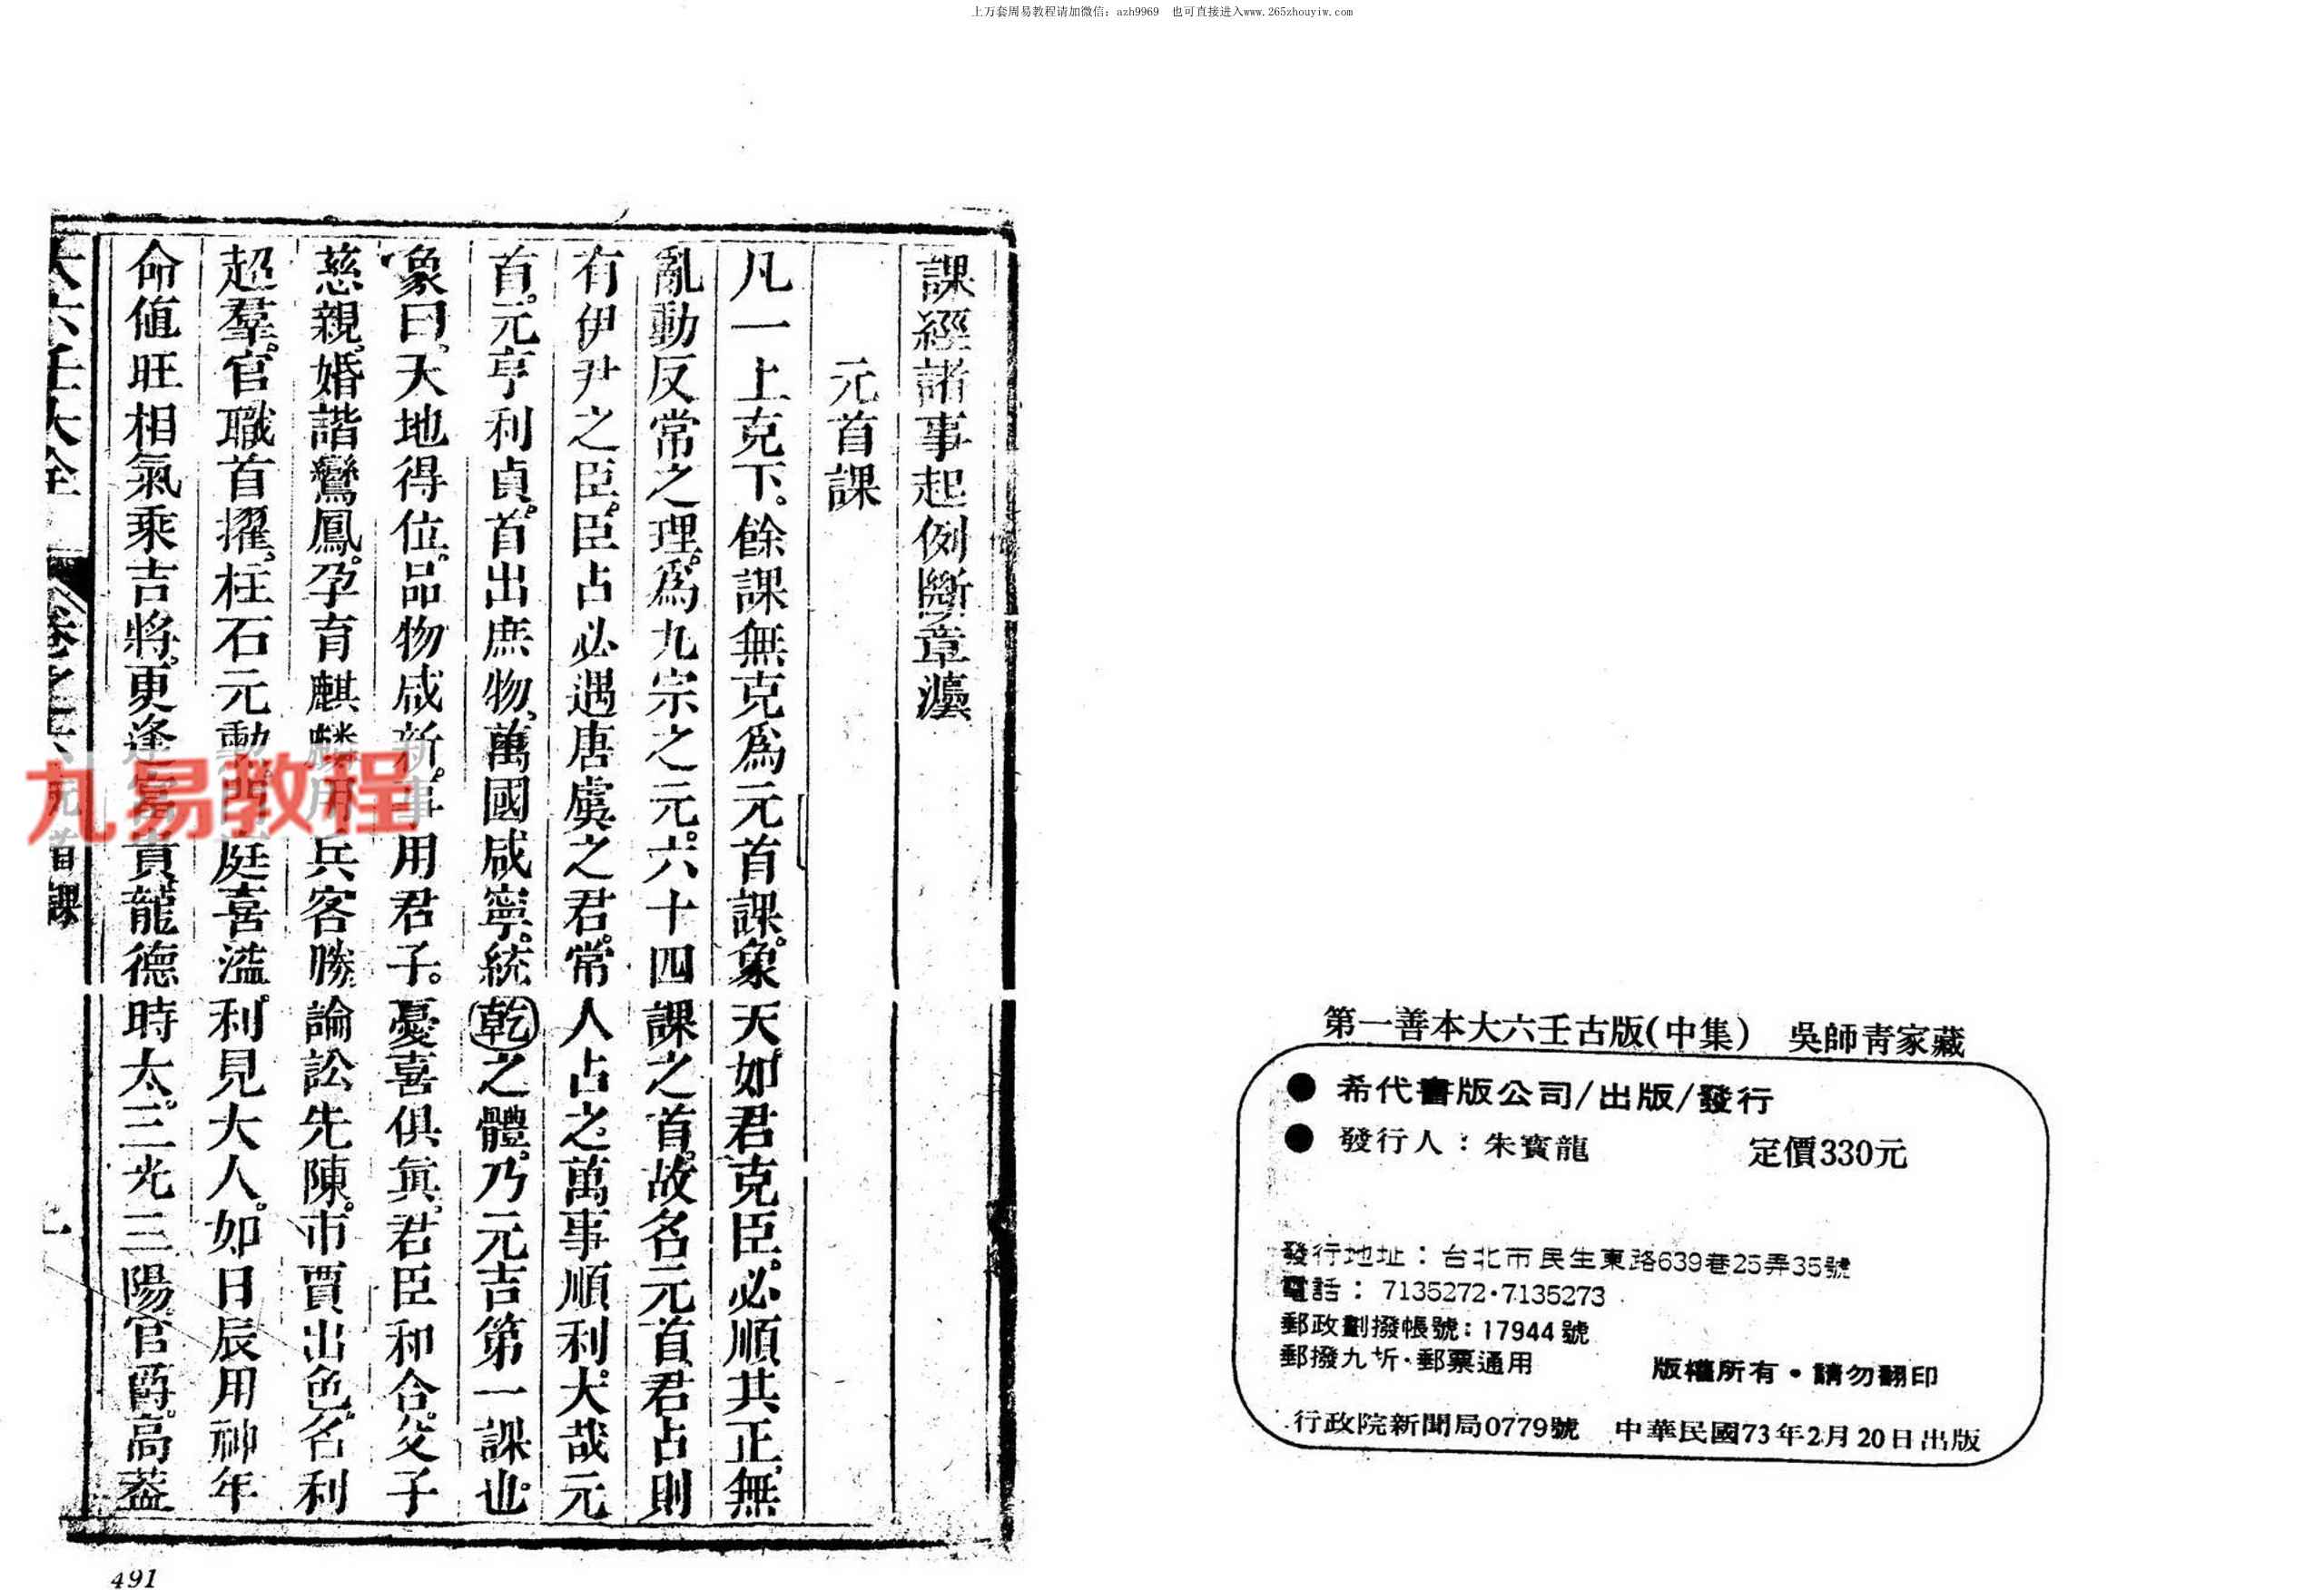 上万套周易教程请加微信：azh9969　也可直接进入www.265zhouyiw.com
課經諸事起例斷章灋
元首課
凡一上克下。餘課無克爲元首課。象天如君克臣。必順其正。無
亂動反常之理。爲九宗之元。六十四課之首。故名元首。君占則
有伊尹之臣。臣占必遇唐虞之君。常人占之。萬事順利。大哉元
首。元亨利貞。首出庶物。萬國咸寧。統乾之體。乃元吉第一課也。
象曰。天地得位。品物咸新。事用君子。憂喜俱眞。君臣和合。父子
慈親。婚諧鸞鳳。孕育麒麟。用兵客勝。論訟先陳。市賈出色。名利
超羣。官職首擢。枉石元勳。門庭喜溢。利見大人。如日辰用神年
命值旺相氣乘吉將。更逢富貴龍德時太。三光三陽。官爵。高蓋
大六壬大全 卷之六 元首課 一
九易教程
491
第一善本大六壬古版(中集)　吳師靑家藏
● 希代書版公司/出版/發行
● 發行人：朱寶龍　定價330元
發行地址：台北市民生東路639巷25弄35號
電話：7135272·7135273
郵政劃撥帳號：17944號
郵撥九折·郵票通用　版權所有·請勿翻印
行政院新聞局0779號　中華民國73年2月20日出版